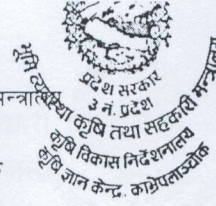 प्रदेश सरकार
३ नं. प्रदेश
भूमि व्यवस्था कृषि तथा सहकारी मन्त्रालय
कृषि विकास निर्देशनालय
कृषि ज्ञान केन्द्र, काभ्रेपलाञ्चोक
मन्त्रालय